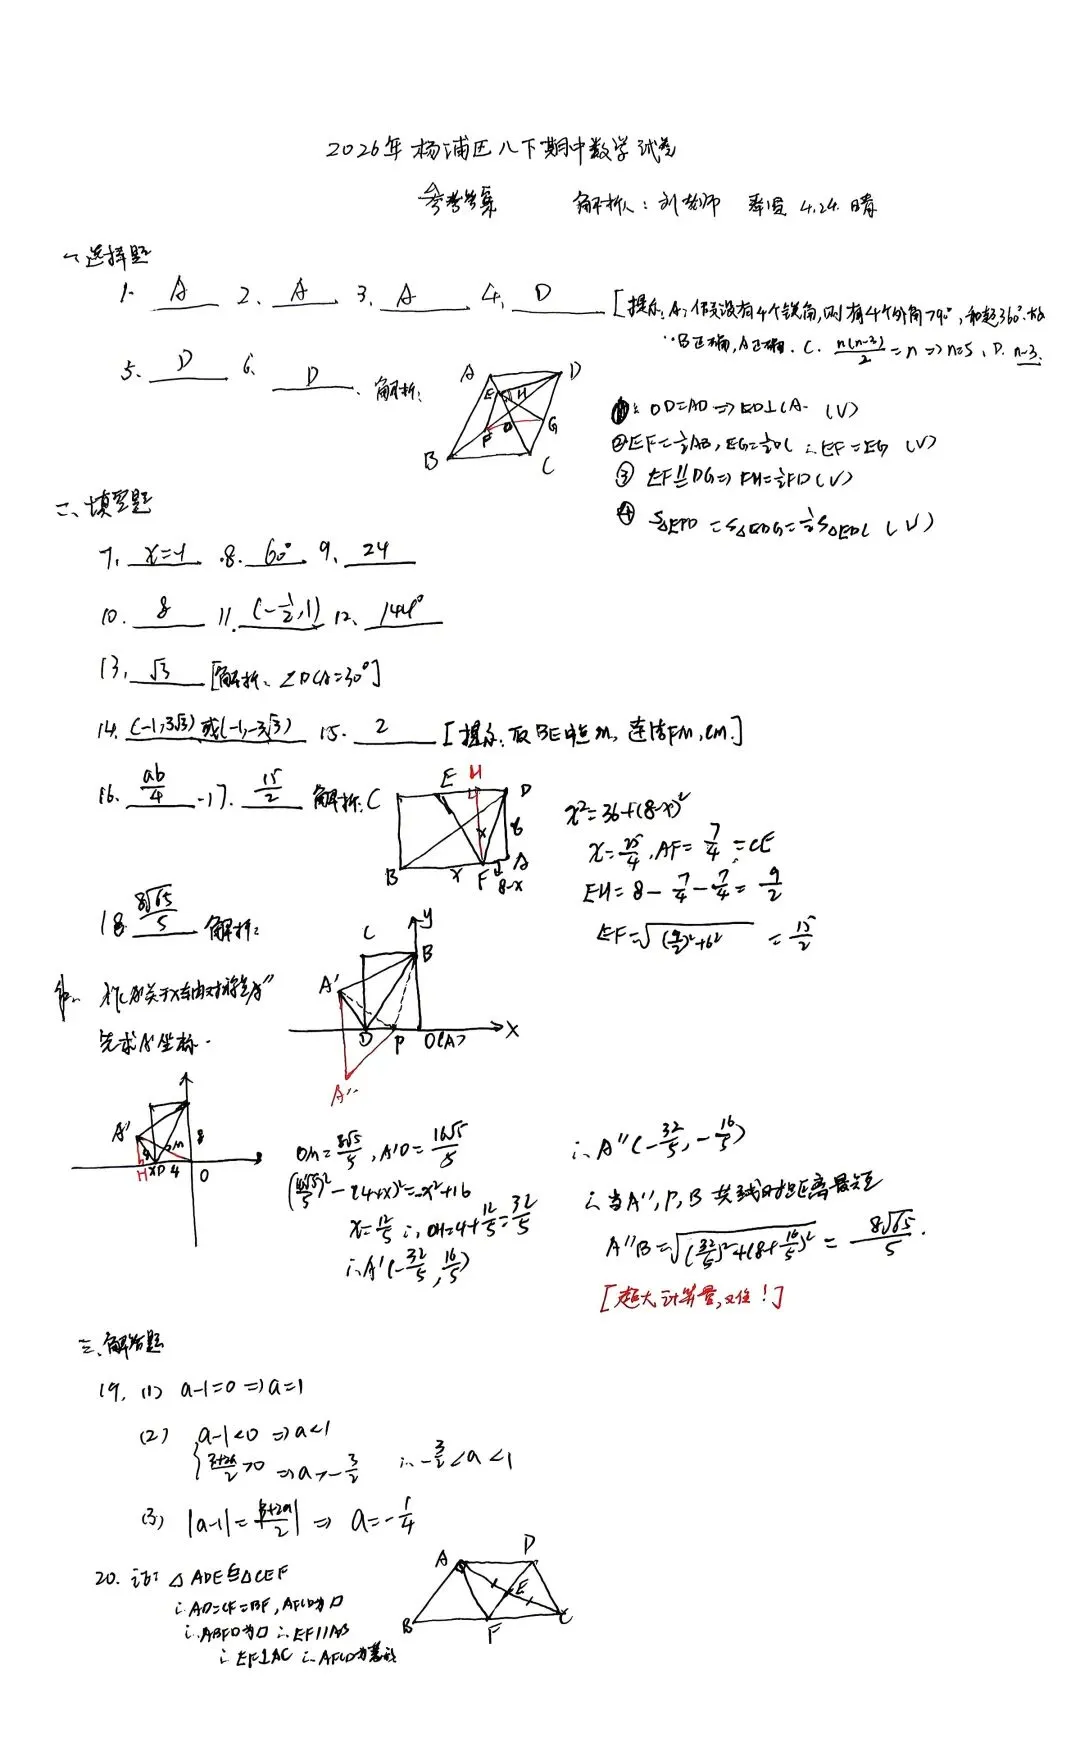 2026年杨浦区八下期中数学试卷
参考答案 解析人：刘老师 4.24. 晴
一、选择题
1. A 2、 A 3、 A 4、 D [提示: A, 假设有4个锐角,则有4个外角>90°, 和超360°.故
∵B正确,A正确. C. n(n-3)/2 = n => n=5, D. n-3.
5. D 6、 D 解析:
A D E H F O G B C
①: OD=AD => ED⊥CA. (√)
②EF=½AB, EG=½DC ∴EF=EG (√)
③ EF∥DG => FH=½FD (√)
④ S△EFD = S△EDG = ½S△EDC (√)
二、填空题
7. x=-1 8. 60° 9、 24
10. 8 11. (-½,1) 12、 144°
13. √3 [解析: ∠DCA=30°]
14. (-1,3√3)或(-1,-3√3) 15. 2 [提示: 取BE中点M, 连结FM, CM.]
16. ab/4 17. 15/2 解析:
C E H D x 6 B x F 8-x A
x²=36+(8-x)²
x=25/4, AF=7/4=CE
EH=8-7/4-7/4=9/2
EF=√((9/2)²+6²) =15/2
18 8√65/5 解析:
y C B A' D P O(A) x A''
作A'关于x轴对称点A''
先求A'坐标.
A' M 8 H x D 4 O
OM=8√5/5, A'O=16√5/5
(16√5/5)²-(4+x)²=-x²+16
x=12/5 ∴OH=4+12/5=32/5
∴A'(-32/5, 16/5)
∴A''(-32/5, -16/5)
∴当A'', P, B 共线时距离最短
A''B=√((32/5)²+(8+16/5)²) = 8√65/5.
[超大计算量, 难！]
三、解答题
19. (1) a-1=0 => a=1
(2) { a-1<0 => a<1
(3+2a)/2>0 => a>-3/2 ∴-3/2<a<1
(3) |a-1|=|3+2a|/2 => a=-1/4
20. 证: △ADE≌△CEF
∴AD=CF=BF, AFCD为▱
∴ABFD为▱ ∴EF∥AB
∴EF⊥AC ∴AFCD为菱形
A D E B F C